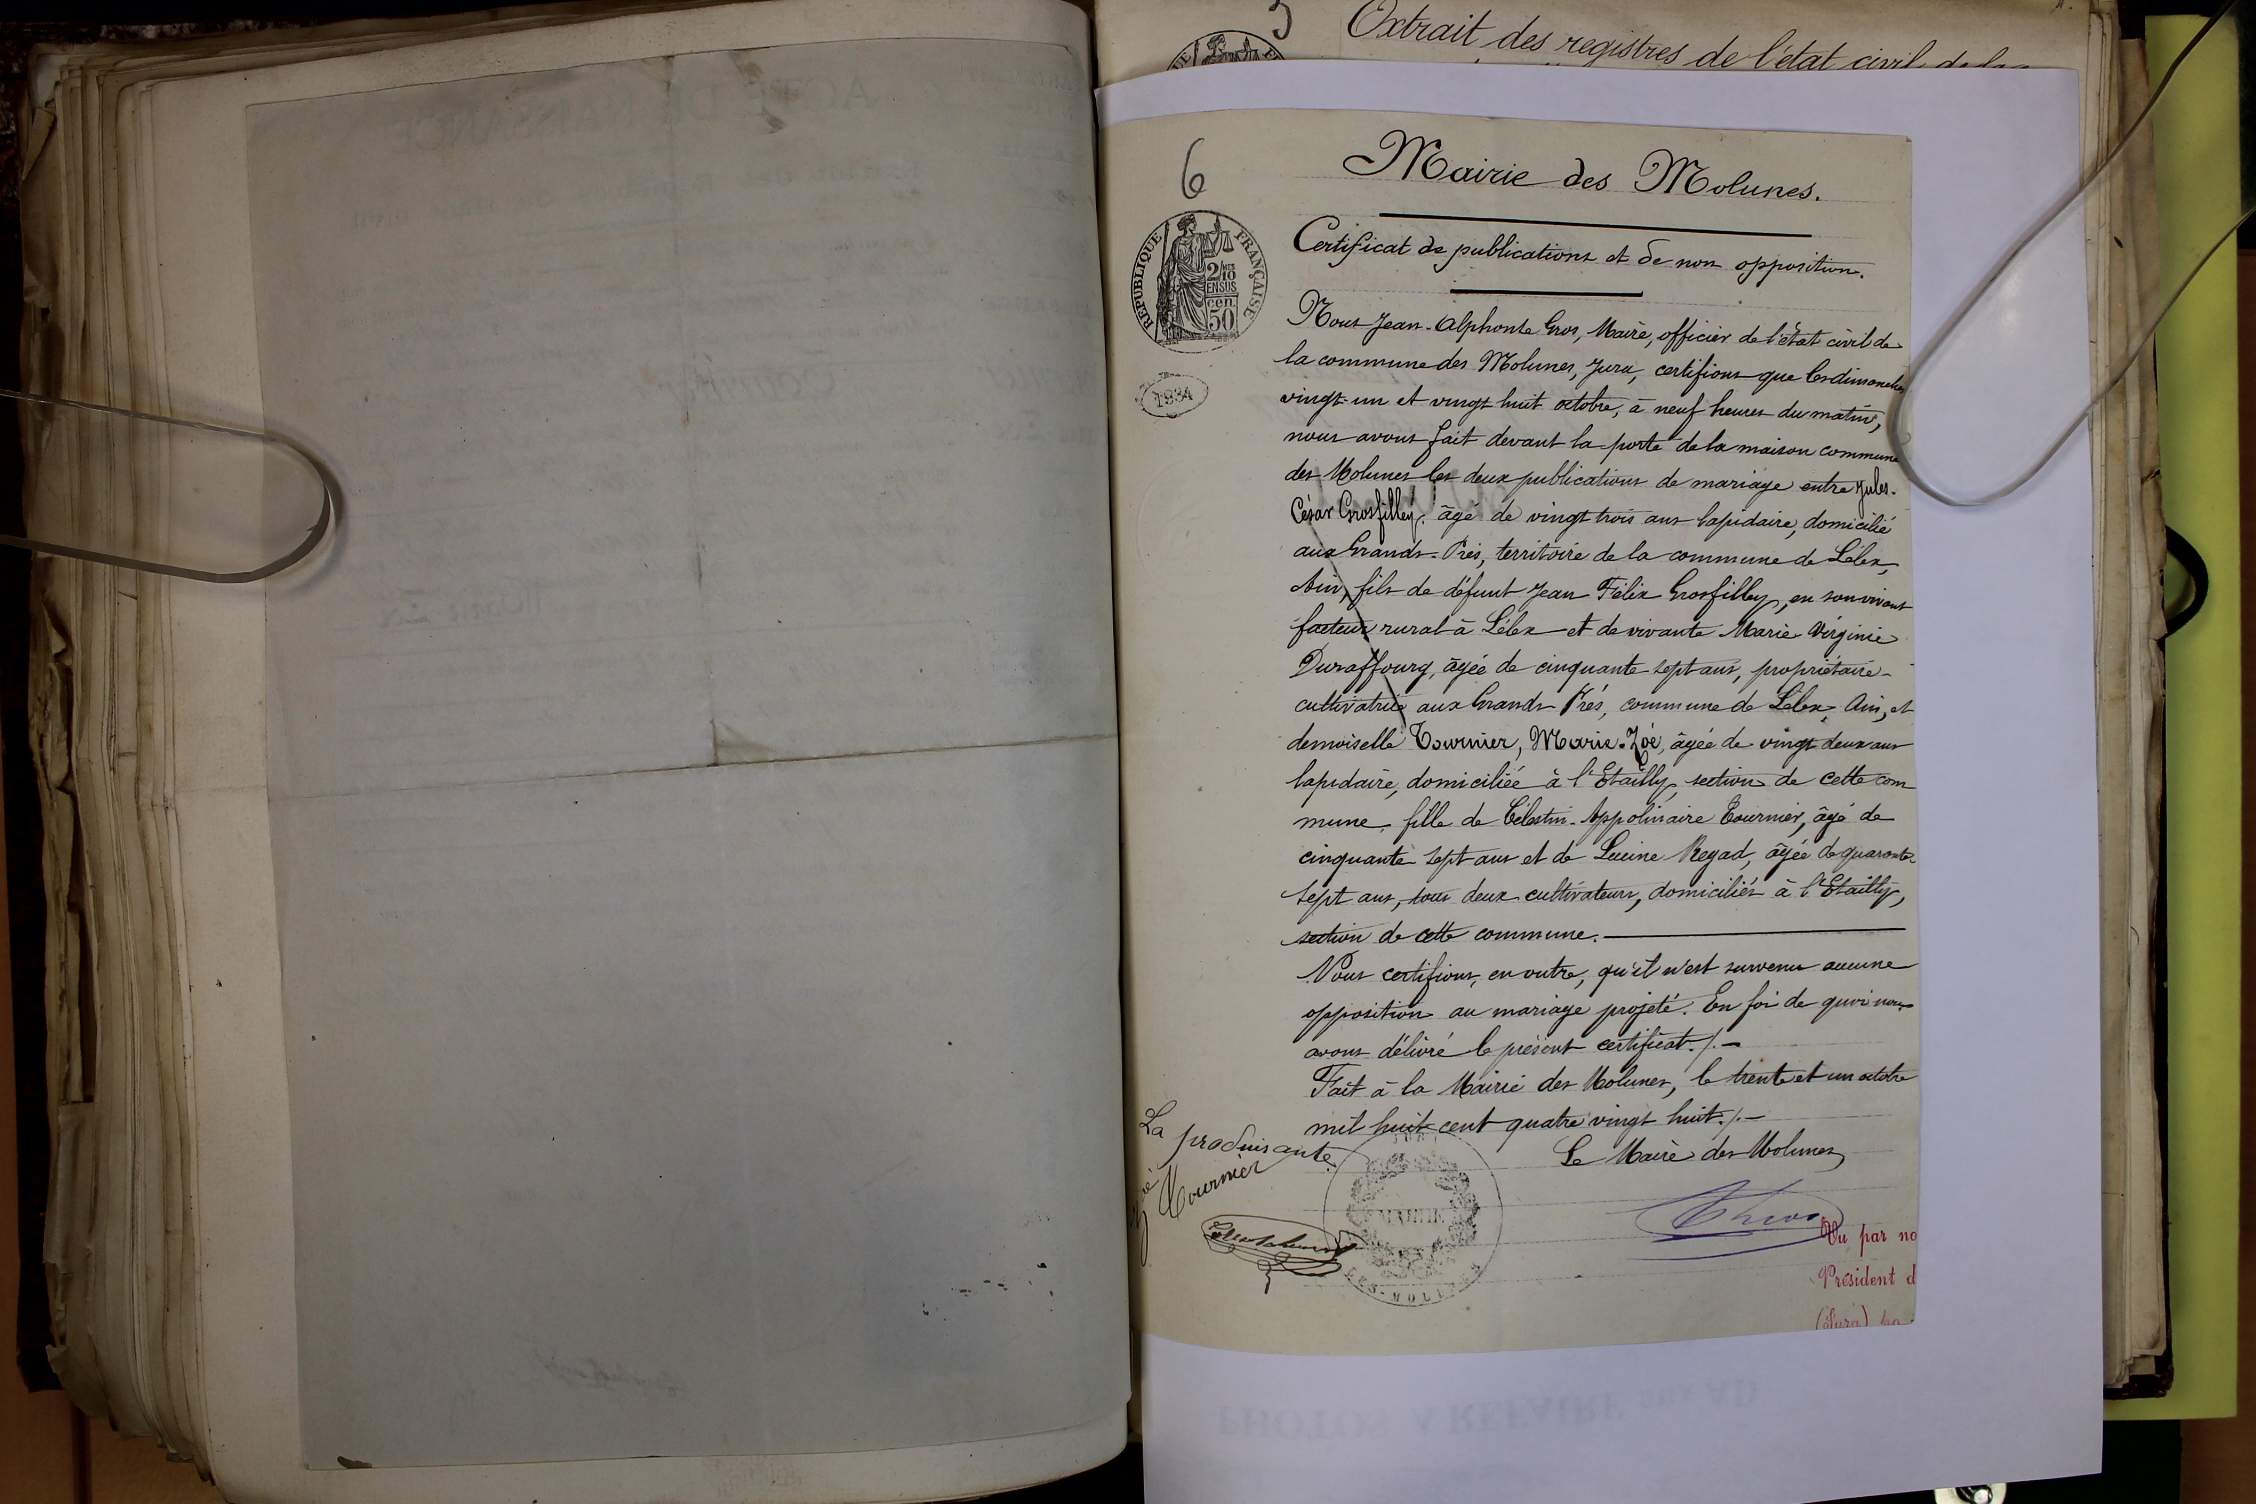 3
Extrait des registres de l'état civil de la
6
Mairie des Molunes.
Certificat de publications et de non opposition.
RÉPUBLIQUE FRANÇAISE
2/10
EN SUS
cen
50
1884
Nous Jean-Alphonse Gros, Maire, officier de l'état civil de
la commune des Molunes, Jura, certifions que les dimanches
vingt-un et vingt huit octobre, à neuf heures du matin,
nous avons fait devant la porte de la maison commune
des Molunes les deux publications de mariage entre Jules-
César Grosfilley, âgé de vingt trois ans lapidaire, domicilié
aux Grands-Prés, territoire de la commune de Lélex,
Ain, fils de défunt Jean Félix Grosfilley, en son vivant
facteur rural à Lélex et de vivante Marie Virginie
Duraffourg, âgée de cinquante sept ans, propriétaire-
cultivatrice aux Grands-Prés, commune de Lélex, Ain, et
demoiselle Tournier, Marie-Zoé, âgée de vingt deux ans
lapidaire, domiciliée à l'Etailly, section de cette com
mune, fille de Célestin-Appolinaire Tournier, âgé de
cinquante sept ans et de Lucine Regad, âgée de quarante-
sept ans, tous deux cultivateurs, domiciliés à l'Etailly,
section de cette commune.
Nous certifions, en outre, qu'il n'est survenu aucune
opposition au mariage projeté. En foi de quoi nous
avons délivré le présent certificat./.
Fait à la Mairie des Molunes, le trente et un octobre
mil huit cent quatre vingt huit./.
Le Maire des Molunes,
La produisante
Tournier
MAIRIE
DES-MOLUNES
JURA
Vu par no
Président d
(Jura)
PHOTOS A REFAIRE AD